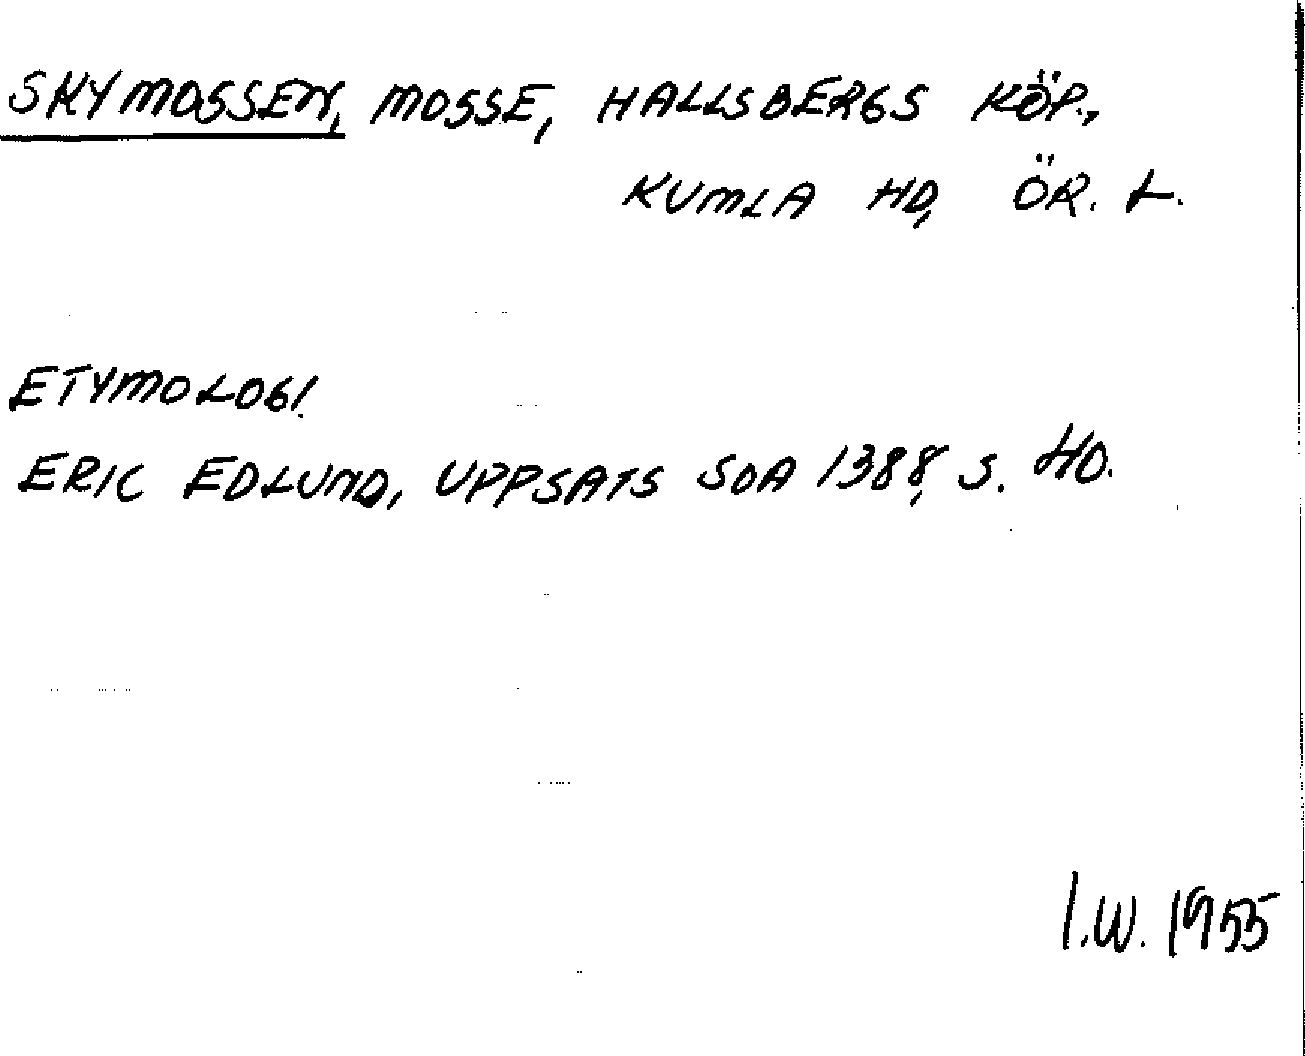 SKYMOSSEN, MOSSE, HALLSBERGS KÖP.,
KUMLA HD, ÖR. L.
ETYMOLOGI.
ERIC EDLUND, UPPSATS SOA 1388, S. 40.
I.W. 1955